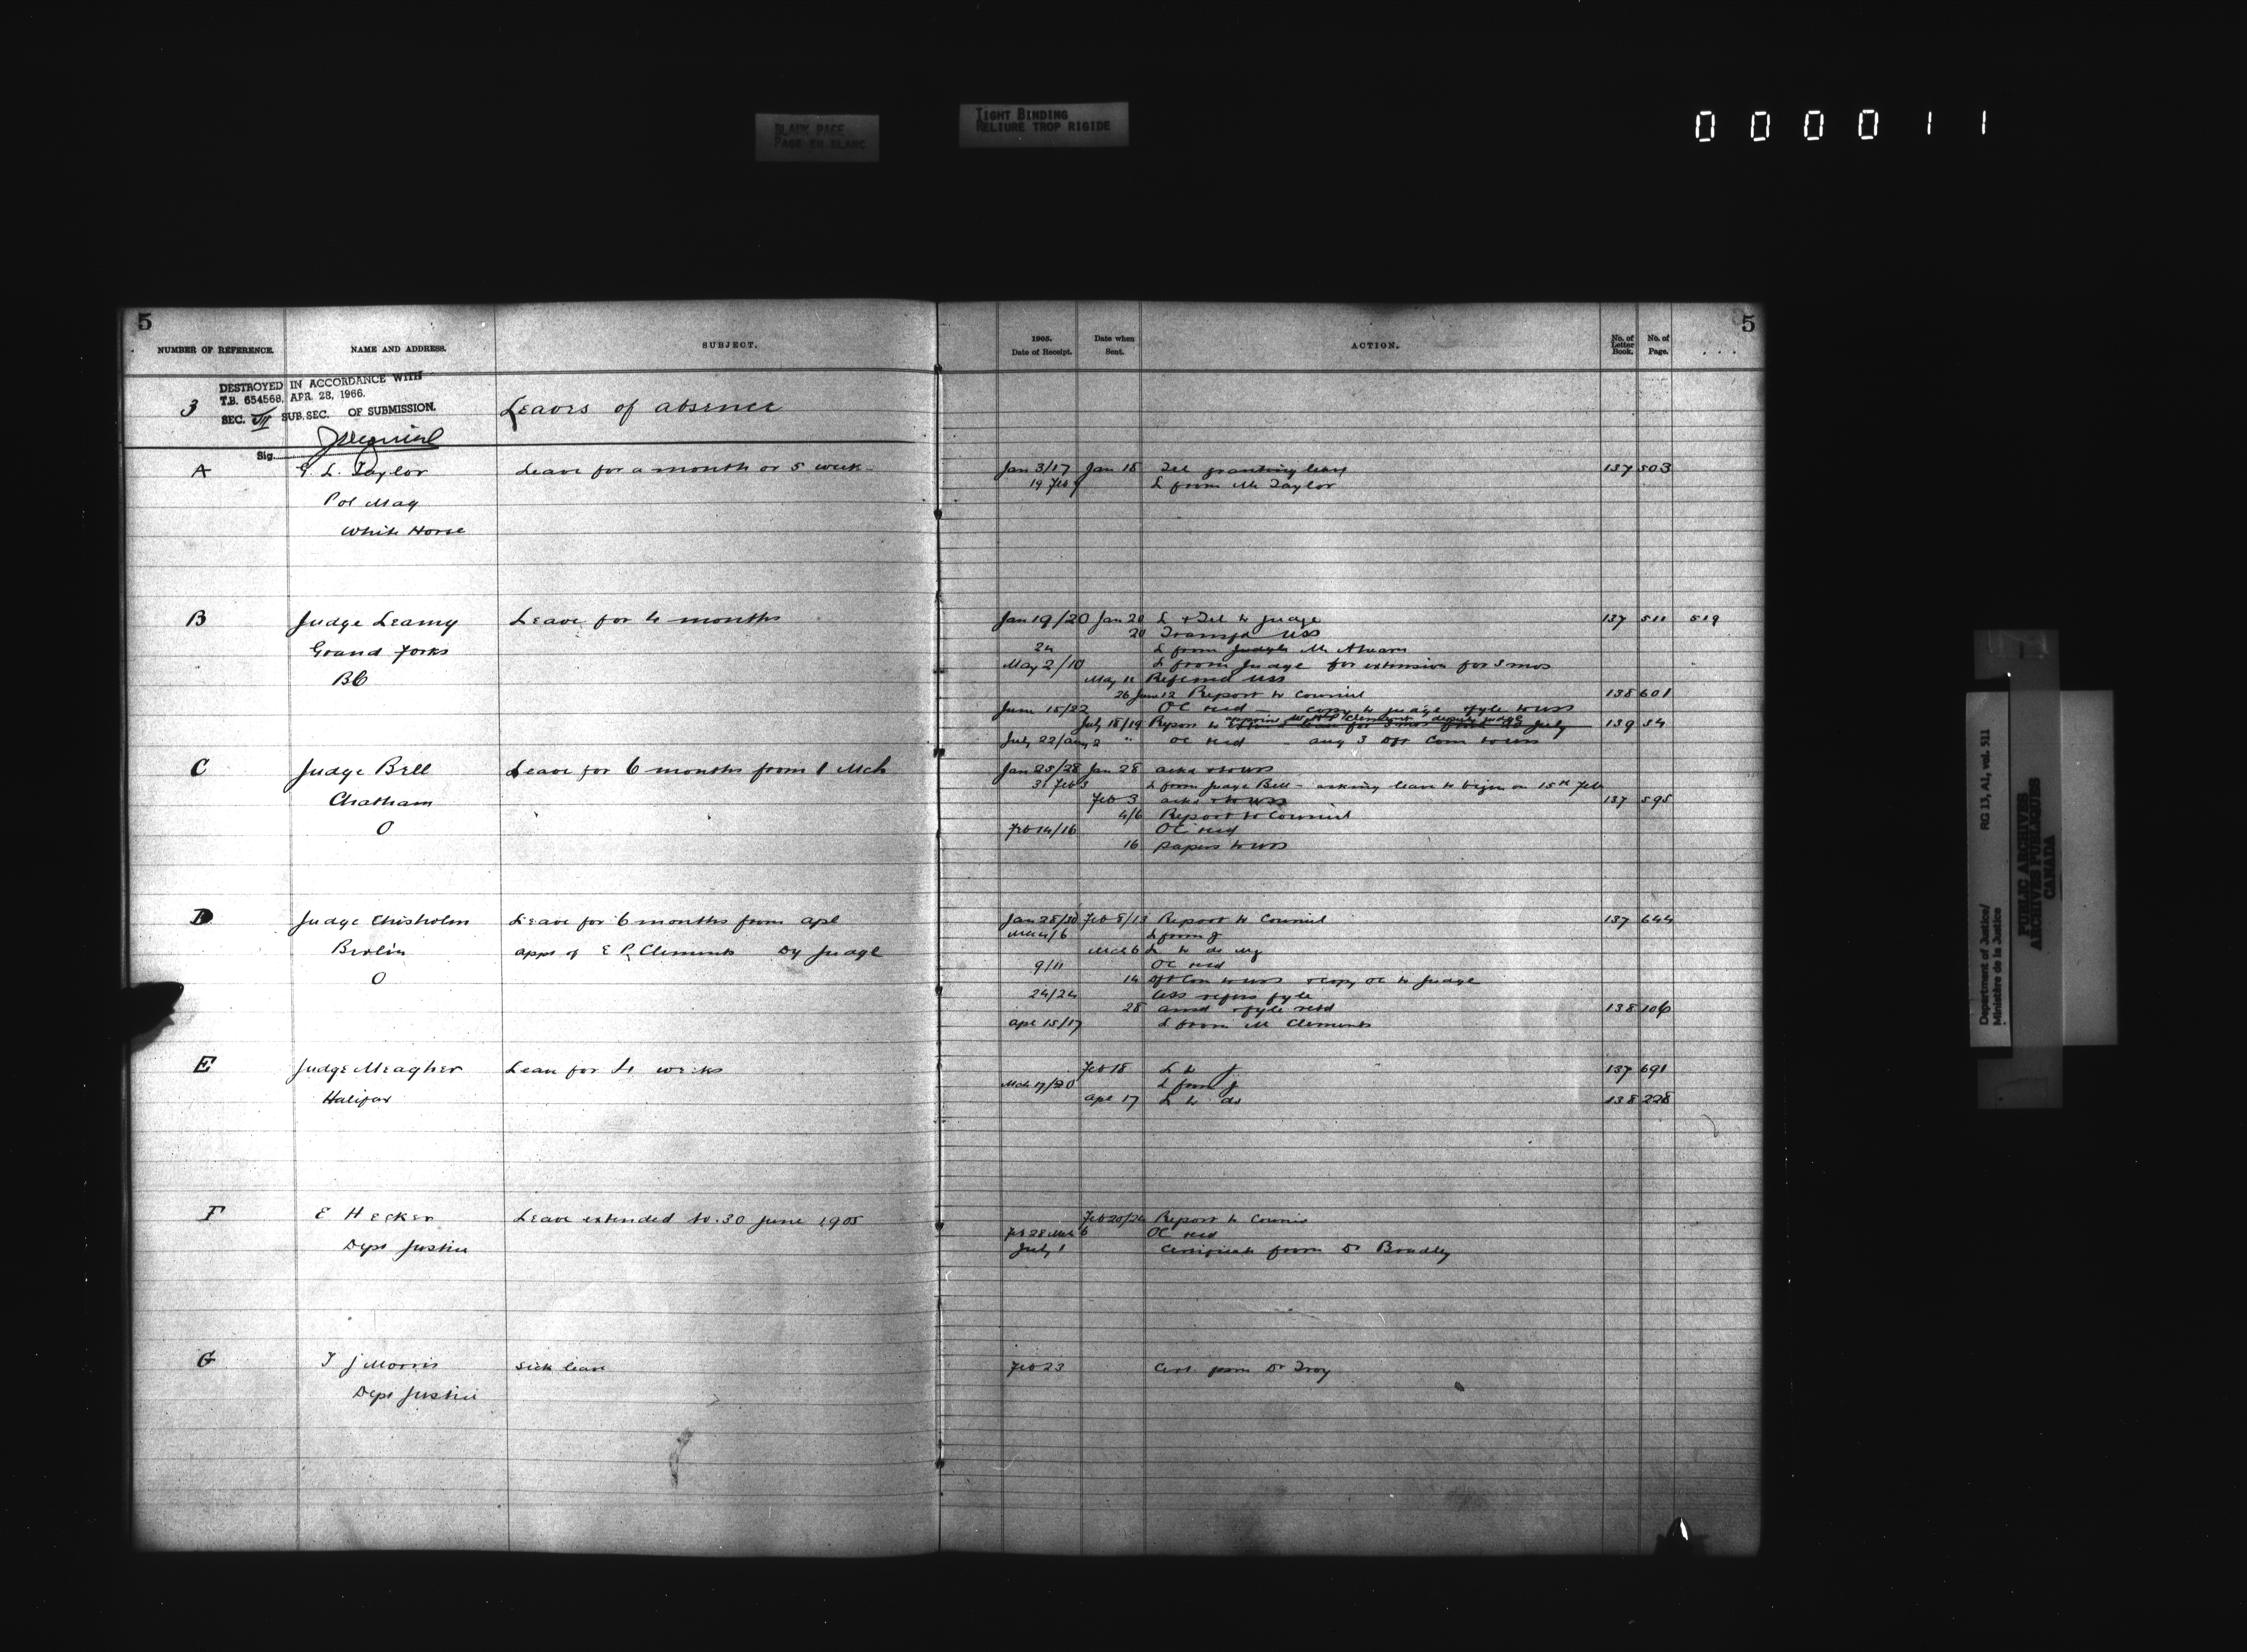 BLANK PAGE
PAGE EN BLANC
TIGHT BINDING
RELIURE TROP RIGIDE
000011
5
NUMBER OF REFERENCE. NAME AND ADDRESS. SUBJECT.
3 Leaves of absence
DESTROYED IN ACCORDANCE WITH
T.B. 654568, APR. 28, 1966.
SEC. VII SUB. SEC. OF SUBMISSION.
Sig.
A G. L. Taylor Leave for a month or 5 week
Pol Mag
White Horse
B Judge Leamy Leave for 4 months
Grand Forks
BC
C Judge Bell Leave for 6 months from 1 Mch
Chatham
O
D Judge Chisholm Leave for 6 months from apl
Berlin appt of E P Clement Dy Judge
O
E Judge Meagher Leave for 4 weeks
Halifax
F E Hecker Leave extended to 30 June 1905
Dept Justice
G T J Morris Sick leave
Dept Justice
5
1905. Date of Receipt. Date when Sent. ACTION. No. of Letter Book. No. of Page.
Jan 3/17 Jan 18 Tel granting leave 137 503
19 Feb 9 L from Mr Taylor
Jan 19/20 Jan 20 L & Tel to Judge 137 511 519
20 Transfd USS
24 L from Mr
May 2/10 L from Judge for extension for 3 mos
May 11 Referred USS
26 June 12 Report to Council 138 601
June 15/22 OC recd - copy to judge & fyle to USS
July 18/19 Report to 139 34
July 22/Aug 2 OC recd - Aug 3 Com to USS
Jan 25/28 Jan 28 ackd & to USS
31 Feb 3 L from Judge Bell - asking leave to begin on 15th Feb
Feb 3 ackd & to USS 137 595
4/6 Report to Council
Feb 14/16 OC recd
16 papers to USS
Jan 28/30 Feb 8/13 Report to Council 137 644
Mch 4/6 L from J
Mch 6 L to do
9/11 OC recd
14 Com to USS & copy OC to Judge
24/24 USS refers fyle
28 ansd & fyle retd 138 106
Apl 15/17 L from Mr Clement
Feb 18 L to J 137 691
Mch 17/20 L from J
Apl 17 L to do 138 228
Feb 20/24 Report to Council
Feb 28 Mch 6 OC recd
July 1 Certificate from Dr Bradley
Feb 23 Cert. from Dr Troy
Department of Justice/
Ministère de la Justice
RG 13, A1, vol. 511
PUBLIC ARCHIVES
ARCHIVES PUBLIQUES
CANADA